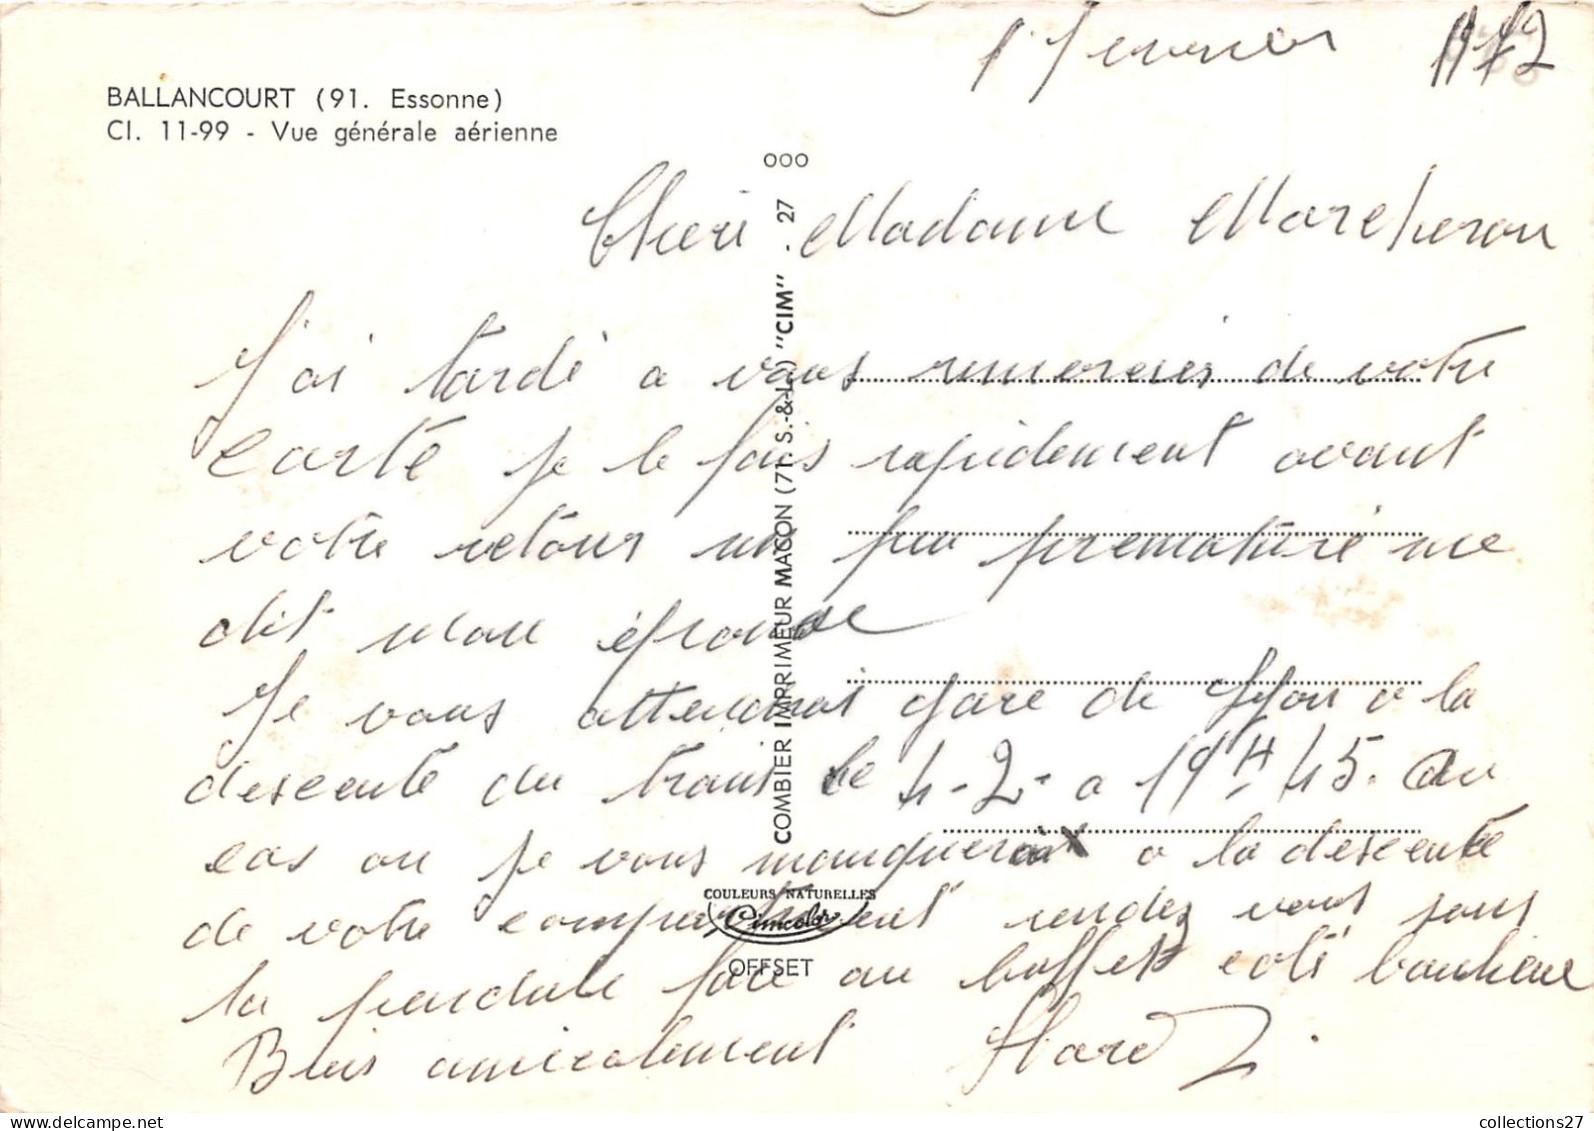 1er fevrier 1972
BALLANCOURT (91. Essonne)
Cl. 11-99 - Vue générale aérienne
OOO
Chere Madame Marcheron
J'ai tardé a vous remercier de votre
carte je le fais rapidement avant
votre retour un peu prematuré me
dit mon épouse
Je vous attendrai gare de Lyon a la
descente du train le 4-2- a 19H45. Au
cas ou je vous manquerai a la descente
de votre compartiment rendez vous sous
la pendule face au buffet coté banlieue
Bien amicalement
COMBIER IMPRIMEUR MACON (71. S.-&-L.) "CIM" . 27
COULEURS NATURELLES
Cimcolor
OFFSET
collections27